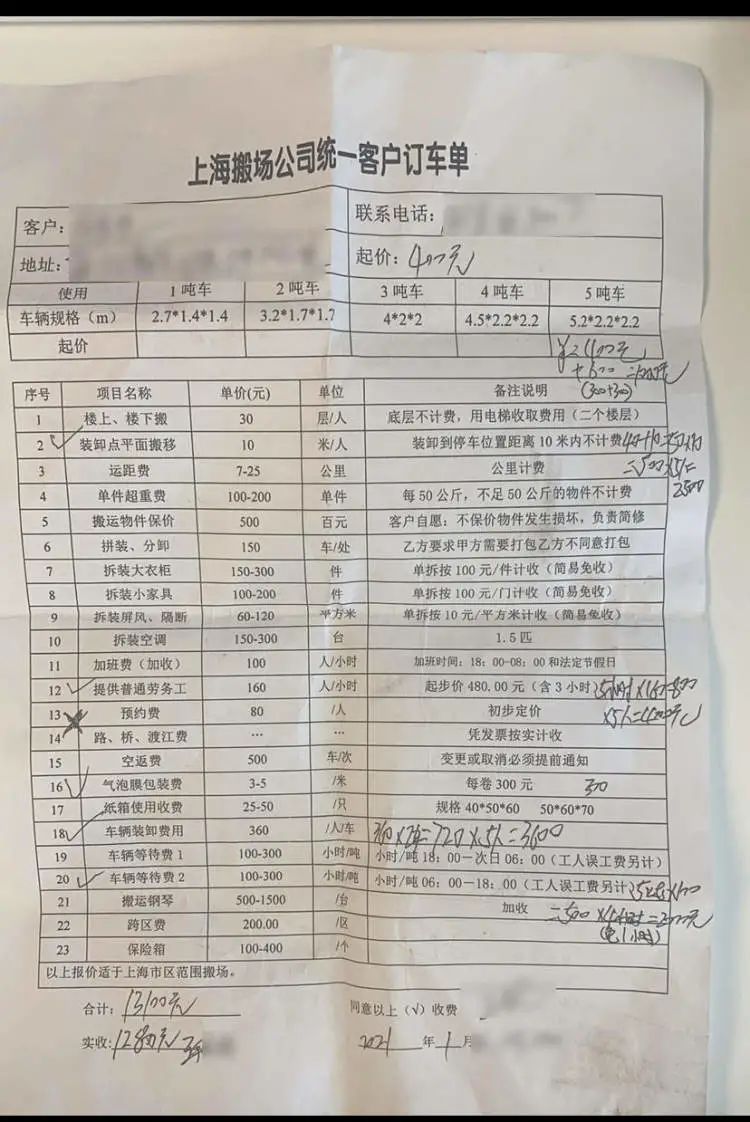 上海搬场公司统一客户订车单
客户： 联系电话：
地址： 起价：400元
使用 1吨车 2吨车 3吨车 4吨车 5吨车
车辆规格（m） 2.7*1.4*1.4 3.2*1.7*1.7 4*2*2 4.5*2.2*2.2 5.2*2.2*2.2
起价 ¥2400元
+600
(300+300)
序号 项目名称 单价(元) 单位 备注说明
1 楼上、楼下搬 30 层/人 底层不计费，用电梯收取费用（二个楼层）
2 √ 装卸点平面搬移 10 米/人 装卸到停车位置距离10米内不计费
=500×5人=
2500
3 运距费 7-25 公里 公里计费
4 单件超重费 100-200 单件 每50公斤，不足50公斤的物件不计费
5 搬运物件保价 500 百元 客户自愿：不保价物件发生损坏，负责简修
6 拼装、分卸 150 车/处 乙方要求甲方需要打包乙方不同意打包
7 拆装大衣柜 150-300 件 单拆按100元/件计收（简易免收）
8 拆装小家具 100-200 件 单拆按100元/门计收（简易免收）
9 拆装屏风、隔断 60-120 平方米 单拆按10元/平方米计收（简易免收）
10 拆装空调 150-300 台 1.5匹
11 加班费（加收） 100 人/小时 加班时间：18：00-08：00和法定节假日
12 √ 提供普通劳务工 160 人/小时 起步价480.00元（含3小时） 5小时×160=800
×5人=4000元
13 预约费 80 /人 初步定价
14 路、桥、渡江费 … … 凭发票按实计收
15 空返费 500 车/次 变更或取消必须提前通知
16 √ 气泡膜包装费 3-5 /米 每卷300元 300
17 纸箱使用收费 25-50 /只 规格40*50*60 50*60*70
18 √ 车辆装卸费用 360 /人/车 360×2车=720×5人=3600
19 车辆等待费1 100-300 小时/吨 小时/吨18：00—次日06：00（工人误工费另计）
20 √ 车辆等待费2 100-300 小时/吨 小时/吨06：00—18：00（工人误工费另计
21 搬运钢琴 500-1500 /台 加收
=500×4小时=2000元
(免1小时)
22 跨区费 200.00 /区
23 保险箱 100-400 /个
以上报价适于上海市区范围搬场。
合计：13100元 同意以上（√）收费
实收：12800元 2021年1月